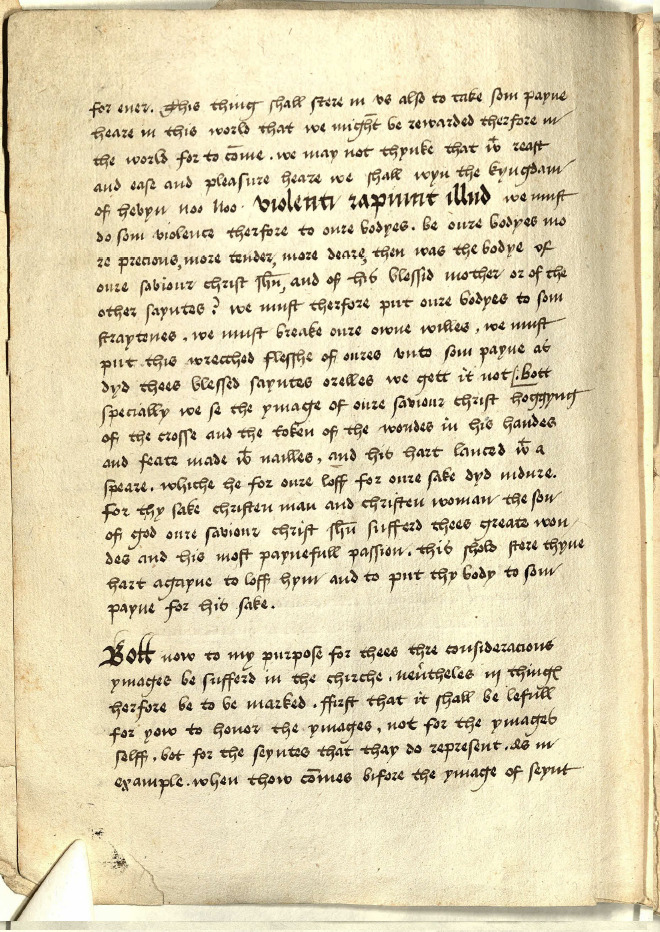 for euer. This thing shall stere in vs also to take som payne
heare in this world that we might be rewarded therfore in
the world for to cōme. we may not thynke that wt reast
and ease and pleasure heare we shall wyn the kyngdam
of hevyn noo noo. violenti rapiunt illud we must
do som violence therfore to oure bodyes. be oure bodyes mo
re precious, more tender, more deare, then was the bodye of
oure saviour christ Ihū, and of his blessid mother or of the
other sayntes? we must therfore put oure bodyes to som
straytenes. we must breake oure owne willes, we must
put this wretched flesshe of oures vnto som payne as
dyd thees blessed sayntes orelles we gett it not. Bott
specially we se the ymage of oure saviour christ hoggyng
of the crosse and the token of the wondes in his handes
and feate made wt nailles, and his hart lanced wt a
speare. whiche he for oure loff for oure sake dyd indure.
For thy sake christen man and christen woman the son
of god oure saviour christ Ihū sufferd thees greate won
des and this most paynefull passion. this shold stere thyne
hart agayne to loff hym and to put thy body to som
payne for his sake.
Bott now to my purpose for thees thre consideracions
ymages be sufferd in the chirche. neūtheles iii thingꝭ
therfore be to be marked. ffirst that it shall be lefull
for yow to honor the ymages, not for the ymages
selff. bot for the seyntes that thay do represent. As in
example. when thow cōmes bifore the ymage of seynt